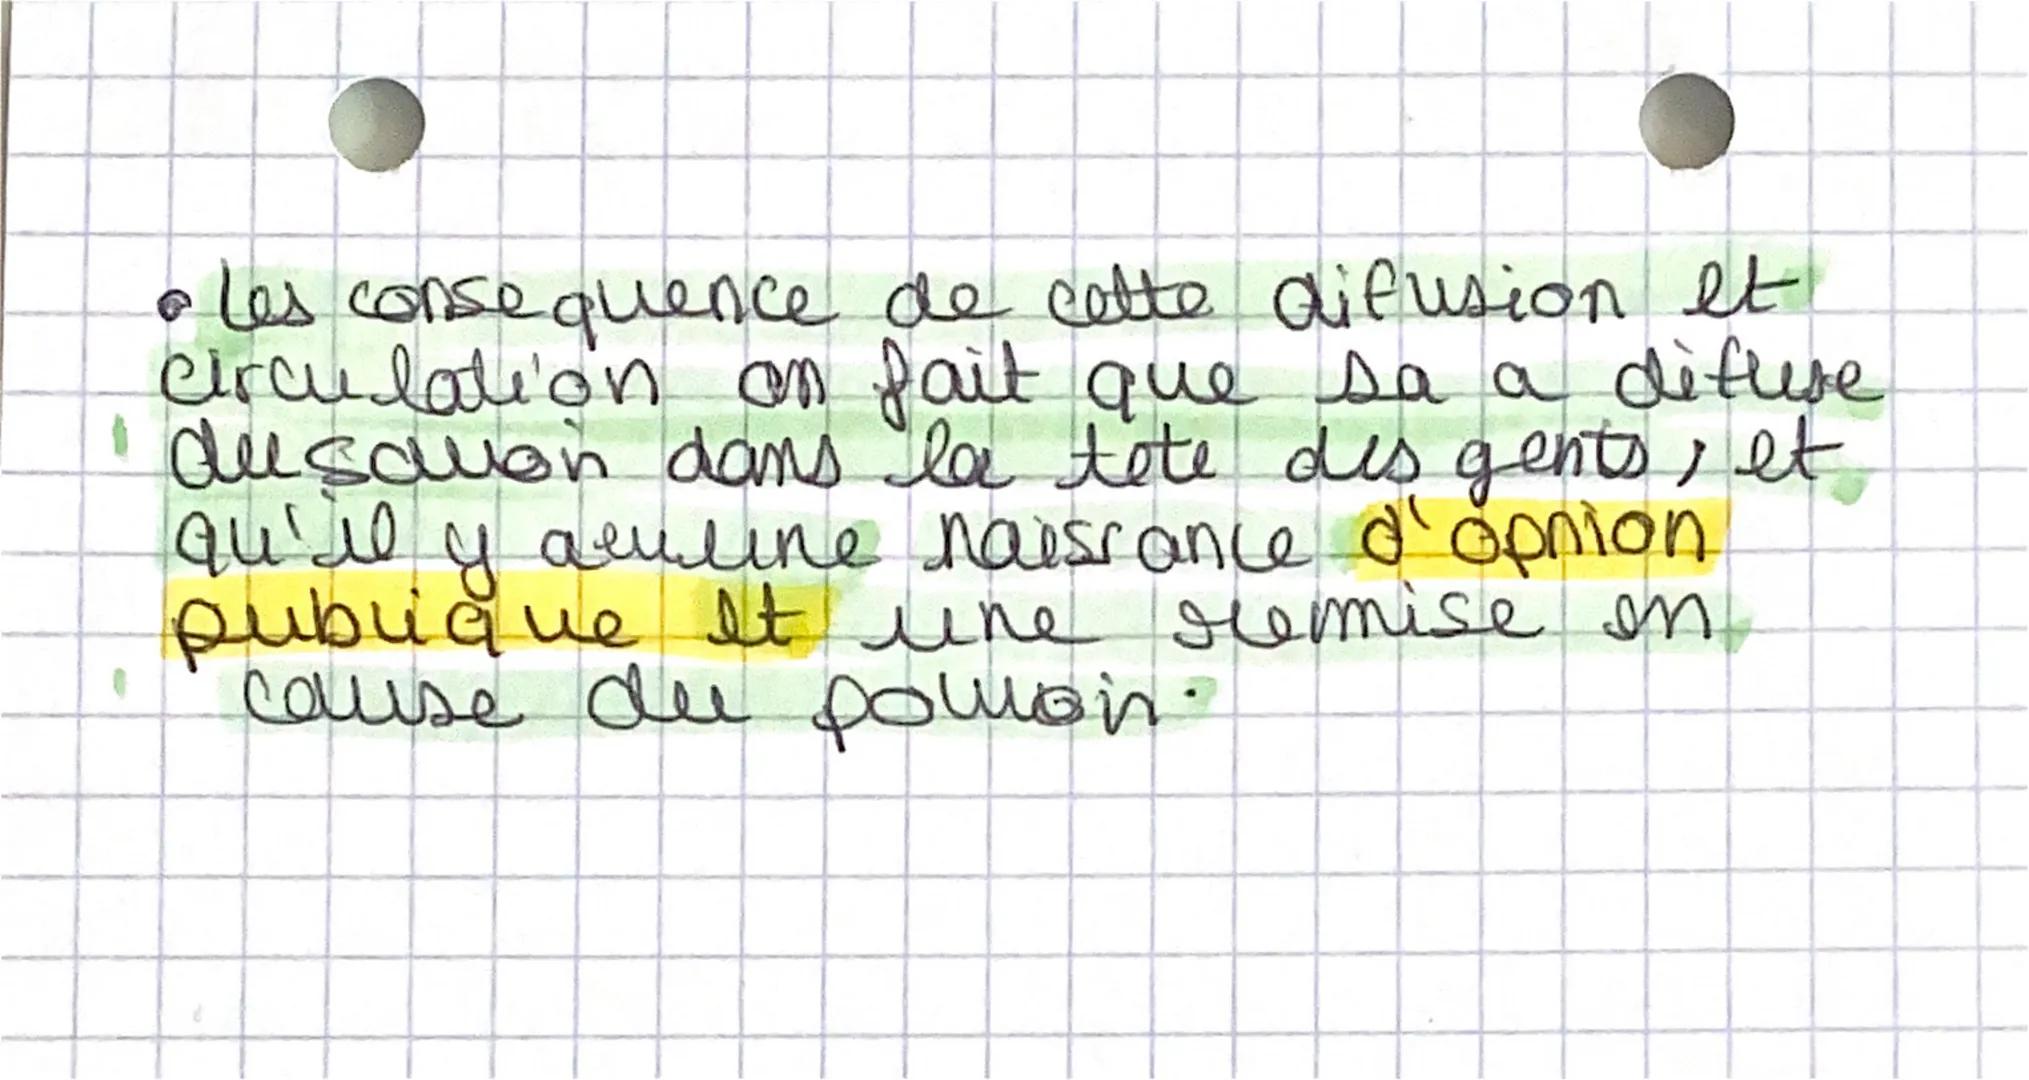 • Les consequence de cette difusion et
circulation on fait que sa a difuse
du savoir dans la tete des gents, et
qu'il y a eu une naissance d'opnion
publique et une remise en
cause du pouvoir.